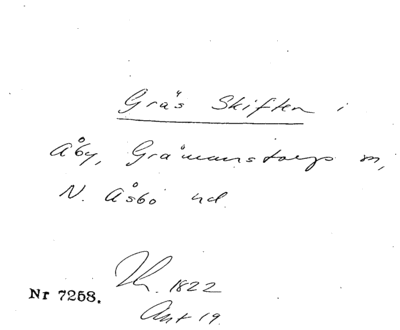 Grås Skiften i
Åby, Gråmanstorps m,
N. Åsbo hd.
1822
Nr 7258.
Akt 19.